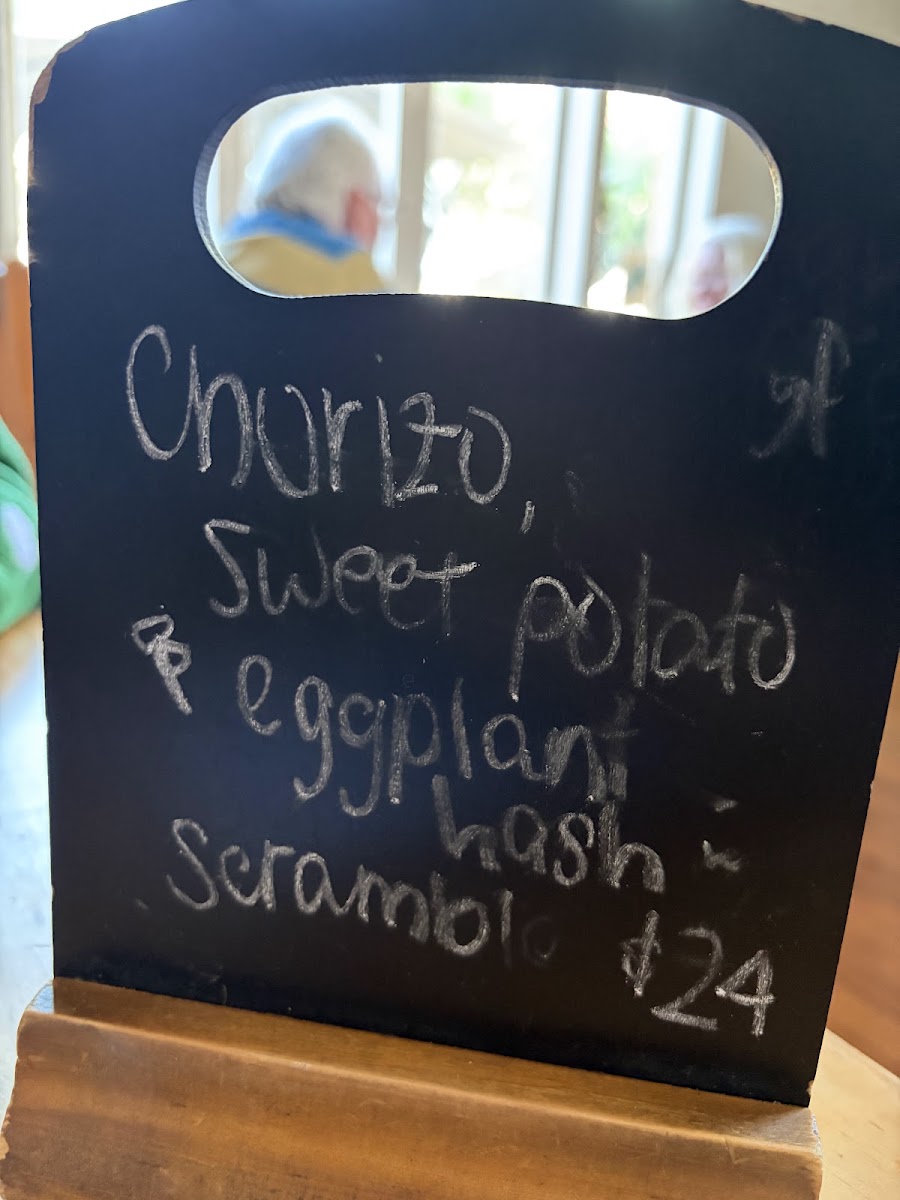 Chorizo, gf
Sweet potato
& eggplant
hash -
Scramble
$24